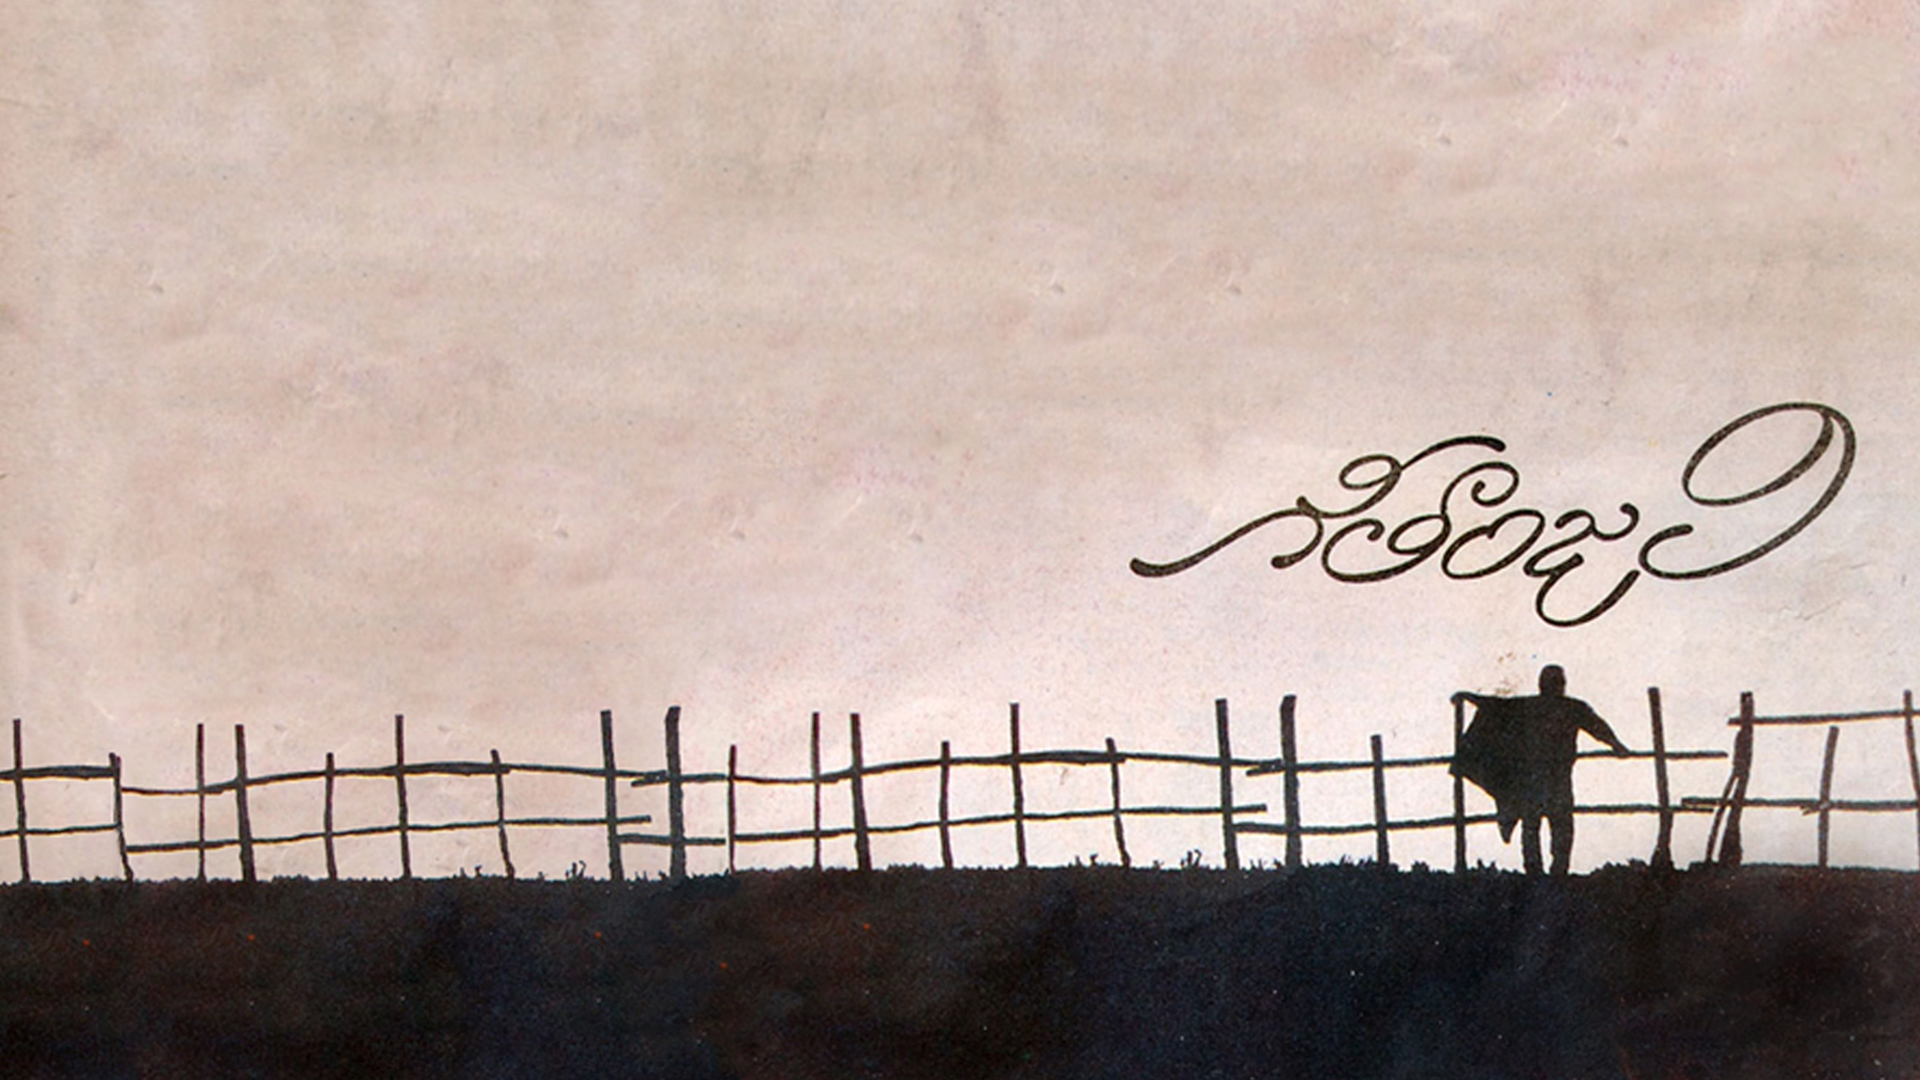 గీతాంజలి